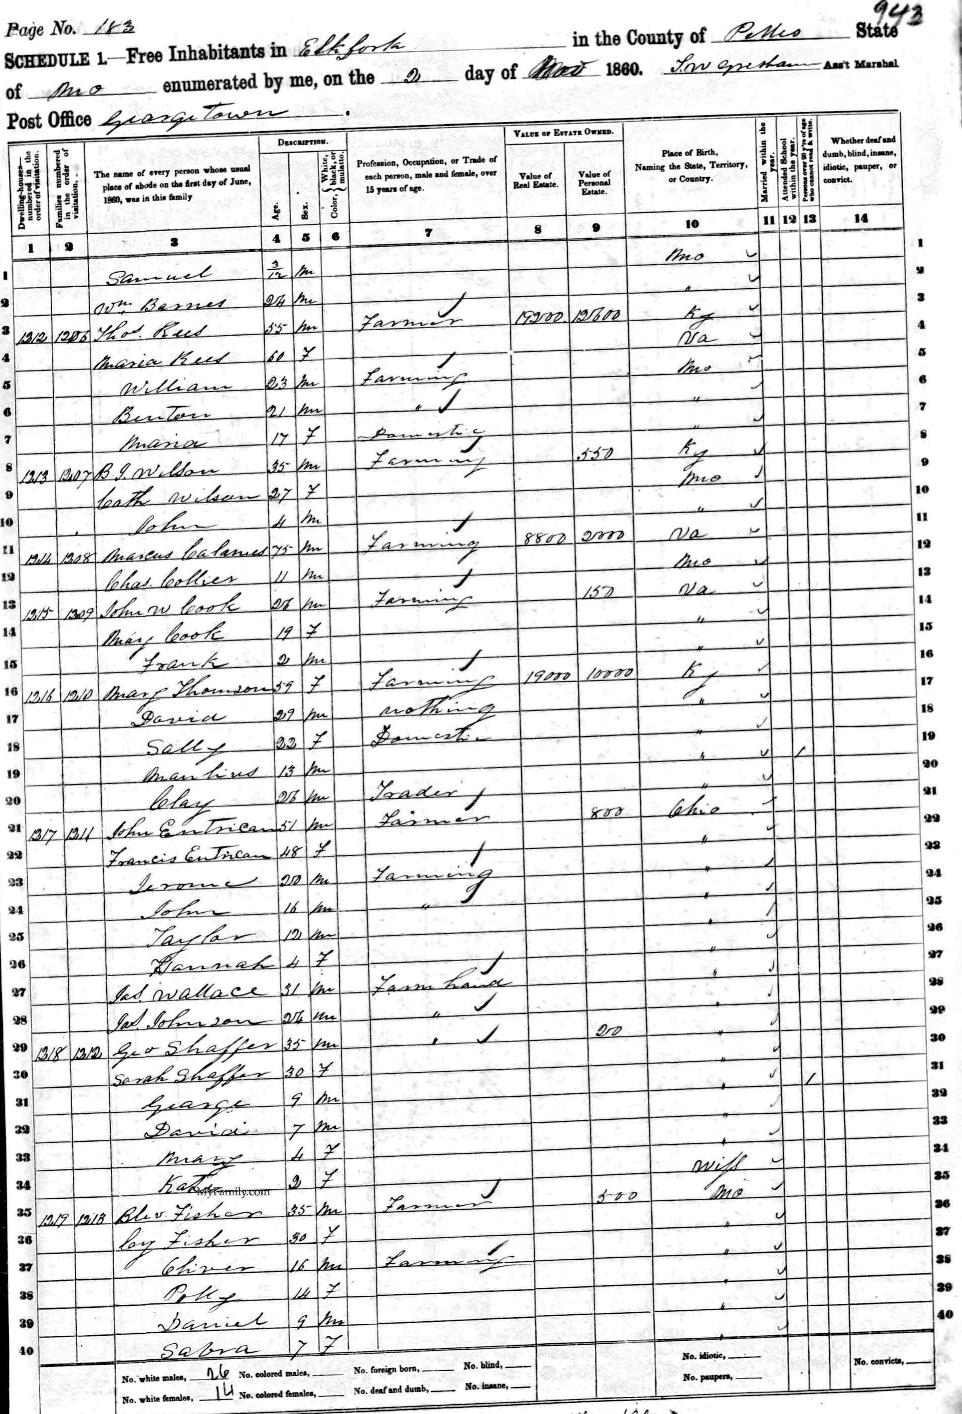 Page No. 183
943
SCHEDULE 1.—Free Inhabitants in Elkfork in the County of Pettis State
of Mo enumerated by me, on the 2 day of Nov 1860. T. W. Gresham Ass't Marshal
Post Office Georgetown.
Dwelling-houses—numbered in the order of visitation.
Families numbered in the order of visitation.
The name of every person whose usual place of abode on the first day of June, 1860, was in this family
DESCRIPTION.
Age.
Sex.
Color, White, black, or mulatto.
Profession, Occupation, or Trade of each person, male and female, over 15 years of age.
VALUE OF ESTATE OWNED.
Value of Real Estate.
Value of Personal Estate.
Place of Birth, Naming the State, Territory, or Country.
Married within the year.
Attended School within the year.
Persons over 20 y'rs of age who cannot read & write.
Whether deaf and dumb, blind, insane, idiotic, pauper, or convict.
1 2 3 4 5 6 7 8 9 10 11 12 13 14
1 Samuel 3/12 m Mo 1
2 Wm Barnes 24 m " 2
3 1212 1206 Thos. Rees 55 m Farmer 19200 12600 Ky 3
4 Maria Rees 60 F Va 4
5 William 23 m Farming Mo 5
6 Benton 21 m " " 6
7 Maria 17 F Domestic " 7
8 1213 1207 B J Wilson 35 m Farming 550 Ky 8
9 Cath Wilson 27 F Mo 9
10 John 4 m " 10
11 1214 1208 Marcus Calames 75 m Farming 8800 2000 Va 11
12 Chas. Collier 11 m Mo 12
13 1215 1209 John W Cook 26 m Farming 150 Va 13
14 Mary Cook 19 F " 14
15 Frank 2 m " 15
16 1216 1210 Mary Thomson 59 F Farming 19000 10000 Ky 16
17 David 29 m nothing " 17
18 Sally 22 F Domestic " 18
19 Manlius 13 m " 1 19
20 Clay 26 m Trader " 20
21 1217 1211 John Entrican 51 m Farmer 800 Ohio 21
22 Francis Entrican 48 F " 22
23 Jerome 20 m Farming " 23
24 John 16 m " " 24
25 Taylor 12 m " 25
26 Hannah 4 F " 26
27 Jas. Wallace 31 m Farm hand " 27
28 Jas. Johnson 24 m " " 28
29 1218 1212 Geo Shaffer 35 m " 20 " 29
30 Sarah Shaffer 30 F " 30
31 George 9 m " 1 31
32 David 7 m " 32
33 Mary 4 F " 33
34 Kate 2 F Wiss 34
MyFamily.com
35 1219 1213 Blev Fisher 35 m Farmer 500 Mo 35
36 Cy Fisher 30 F " 36
37 Oliver 16 m Farming " 37
38 Polly 14 F 38
39 Daniel 9 m " 39
40 Sabra 7 F " 40
No. white males, 26 No. colored males, No. foreign born, No. blind, No. idiotic, No. convicts,
No. white females, 14 No. colored females, No. deaf and dumb, No. insane, No. paupers,